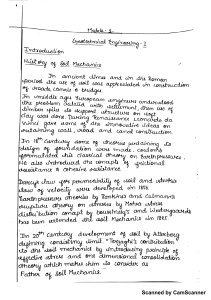 Module - 1
Geotechnical Engineering - 1
Introduction
History of Soil Mechanics
In ancient times and in the Roman
period the use of soil was appreciated in construction
of roads, canals & bridges.
In middle ages European engineers understood
the problem related with settlement, then use of
timber pile to support structure on soft
clay was done. During Renaissance Leonardo da
Vinci gave some of the innovative ideas on
sustaining wall, road and canal construction.
In 18th Century some of theories pertaining to
design of foundation were made. Coulomb
formulated his classical theory on Earthpressures;
he also introduced the concepts of frictional
resistance & cohesive resistance.
Darcy's law for permeability of soil and stokes
law of velocity were developed in 1856
Earthpressure theories by Rankines and Culmann's
graphic theory on stresses by Mohr stress
distribution concept by Boussinesq's and Westergaards
has been extended the soil Mechanics in 1885
In 20th Century development of soil by Atterberg
defining consistency limit. "Terzaghi's contribution
to the soil mechanics by introducing principle of
effective stress and one dimensional consolidation
theory which makes him to consider as
Father of Soil Mechanics
Scanned by CamScanner